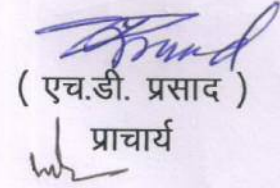 ( एच.डी. प्रसाद )
प्राचार्य